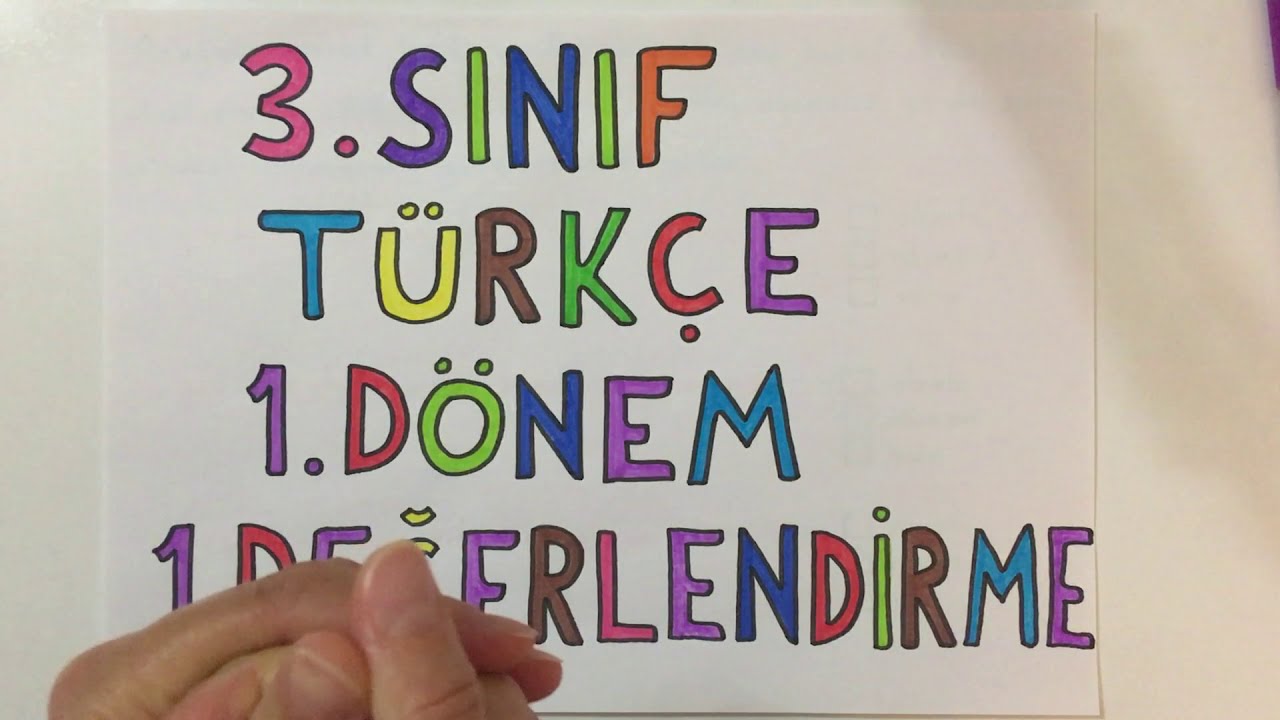 3. SINIF
TÜRKÇE
1. DÖNEM
1. DEĞERLENDİRME